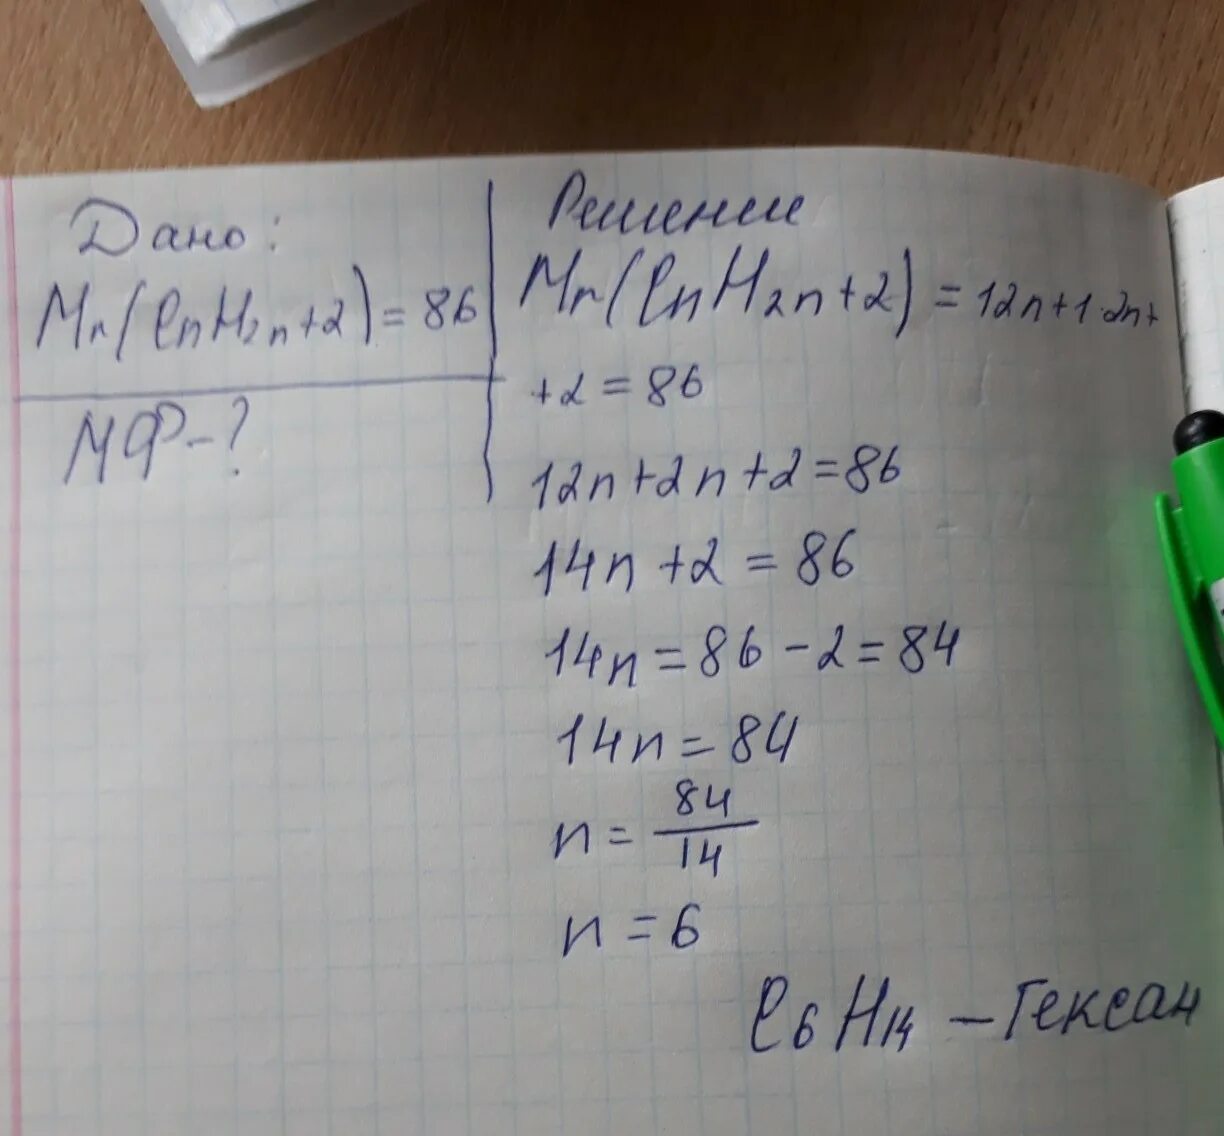 Дано:
Mr(CnH2n+2)=86
МФ-?
Решение
Mr(CnH2n+2)=12n+1·2n+
+2=86
12n+2n+2=86
14n+2=86
14n=86-2=84
14n=84
n=84/14
n=6
C6H14 - Гексан